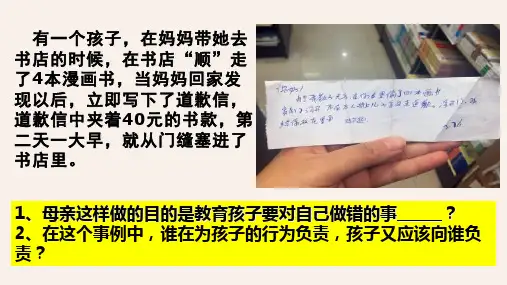 有一个孩子，在妈妈带她去
书店的时候，在书店“顺”走
了4本漫画书，当妈妈回家发
现以后，立即写下了道歉信，
道歉信中夹着40元的书款，第
二天一大早，就从门缝塞进了
书店里。
你好！
1、母亲这样做的目的是教育孩子要对自己做错的事______？
2、在这个事例中，谁在为孩子的行为负责，孩子又应该向谁负
责？